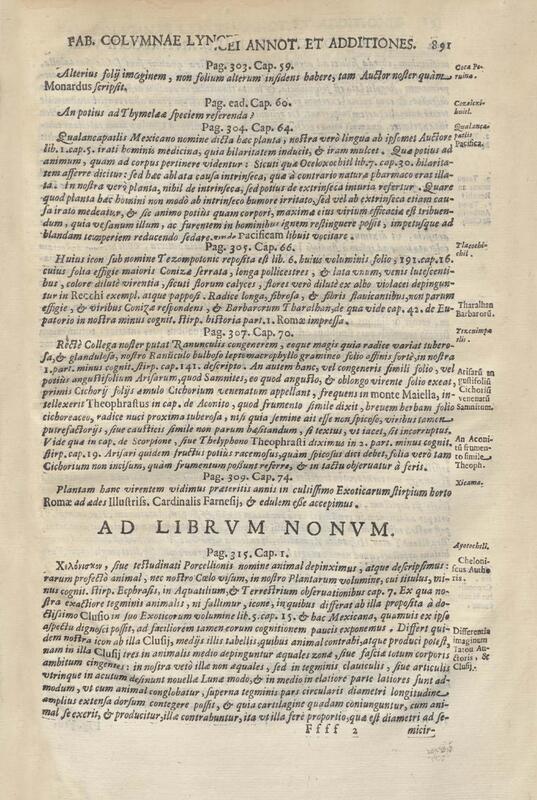 FAB. COLVMNAE LYNCEI ANNOT. ET ADDITIONES. 891
Pag. 303. Cap. 59.
Alterius folij imaginem, non folium alterum insidens habere, tam Auctor noster quàm
Monardus scripsit.
Coca Pe-
ruina.
Pag. ead. Cap. 60.
An potius ad Thymelææ speciem referenda?
Pag. 304. Cap. 64.
Qualancapatlis Mexicano nomine dicta hæc planta, nostra verò lingua ab ipsomet Auctore
lib. 1. cap. 5. irati hominis medicina, quia hilaritatem inducit, & iram mulcet. Quæ potius ad
animum, quam ad corpus pertinere videntur: Sicuti quæ Oceloxochitl lib. 7. cap. 30. hilarita-
tem afferre dicitur: sed hæc ablata causa intrinseca, quæ à contrario naturæ pharmaco eras illa-
ta. In nostra verò planta, nihil de intrinseca, sed potius de extrinseca iniuria refertur. Quare
quod planta hæc homini non modò ab intrinseco humore irritato, sed vel ab extrinseca etiam cau-
sa irato medeatur, & sic animo potiùs quam corpori, maxima eius virium efficacia est tribuen-
dum, quia vesanum illum, ac furentem in hominibus ignem restinguere possit, impetusque ad
blandam temperiem reducendo sedare, Pacificam libuit vocitare.
Qualanca-
patlis
Pacifica.
Pag. 305. Cap. 66.
Huius icon sub nomine Tezompotonic reposita est lib. 6. huius voluminis folio, 191. cap. 16.
cuius folia effigie maioris Conizæ serrata, longa pollicestres, & lata vnum, venis lutescenti-
bus, colore dilutè virentia, sicuti florum calyces, flores verò dilutè ex albo violacei depingun-
tur in Recchi exempl. atque papposi. Radice longa, fibrosa, & fibris flauicantibus, non parum
effigie, & viribus Conizæ respondens, & Barbarorum Tharalhan, de qua vide cap. 42. de Eu-
patorio in nostra minus cognit. stirp. historia part. 1. Romæ impressa.
Tharalhan
Barbarorū.
Pag. 307. Cap. 70.
Rectè Collega noster putat Ranunculis congenerem, eoque magis quia radice variat tubero-
sa, & glandulosa, nostro Ranūculo bulboso leptomacrophyllo gramineo folio affinis fortè, in nostra
1. part. minus cognit. stirp. cap. 141. descripto. An autem hæc, vel congeneris simili folio, vel
potiùs angustifolium Arisarum, quod Samnites, eo quod angusto, & oblongo virente folio exeat,
primis Cichorij folijs æmulo Cichorium venenatum appellant, frequens in monte Maiella, in-
tellexerit Theophrastus in cap. de Aconito, quod frumento simile dixit, breuem herbam folio
cichoreaceo, radice nuci proxima tuberosa, nisi quia semine ait esse non spicoso, viribus tamen
putrefactorijs, siue causticis simile non parum hæsitandum, si textus, vt iacet, sit incorruptus.
Vide quæ in cap. de Scorpione, siue Thelyphono Theophrasti diximus in 2. part. minus cognit.
stirp. cap. 19. Arisari quidem fructus potiùs racemosus, quàm spicosus dici debet, folia verò tam
Cichorium non incisum, quàm frumentum possunt referre, & in tactu obseruatur à feris.
Arisarū an
gustifoliū
Cichoriū
venenatū
Samnitum.
An Aconi-
tū frumen-
to simile
Theoph.
Pag. 309. Cap. 74.
Plantam hanc virentem vidimus præteritis annis in cultissimo Exoticarum stirpium horto
Romæ ad ædes Illustriss. Cardinalis Farnesij, & edulem esse accepimus.
Xicama.
AD LIBRVM NONVM.
Pag. 315. Cap. 1.
siue testudinati Porcellionis nomine animal depinximus, atque descripsimus:
rarum profectò animal, nec nostro Cœlo visum, in nostro Plantarum volumine, cui titulus, mi-
nus cognit. stirp. Ecphrasis, in Aquatilium, & Terrestrium obseruationibus cap. 7. Ex qua no-
stra exactiore tegminis animalis, ni fallimur, icone, in quibus differat ab illa proposita à do-
ctissimo Clusio in suo Exoticorum volumine lib. 5. cap. 15. & hac Mexicana, quamuis ex ipso
aspectu dignosci possit, ad faciliorem tamen cognitionem paucis exponemus. Differt qui-
dem nostra icon ab illa Clusij, medijs illis tabellis, quibus animal contrahi, atque produci potest,
nam in illa Clusij tres in animalis medio depinguntur æquales zonæ, siue fasciæ totum corporis
ambitum cingentes: in nostra verò illæ non æquales, sed in tegminis clauiculis, siue articulis
vtrinque in acutum desinunt nouellæ Lunæ modo, & in medio in elatiore parte latiores sunt ad-
modum, vt cum animal conglobatur, superna tegminis pars circularis diametri longitudine
amplius extensa dorsum contegere possit, & quia cartilagine quadam coniunguntur, cum ani-
mal se exerit, & producitur, illæ contrahuntur, ita vt illa ferè proportio, quæ est diametri ad se-
Ayotochtli.
Cheloni-
scus Autho
ris.
Differentia
imaginum
Tatou Au-
ctoris, &
Clusij.
Ffff 2 micir-